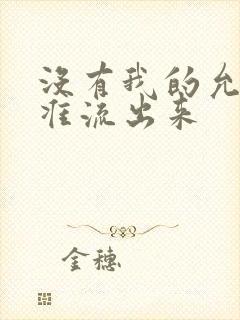 没有我的允
准流出来
金穗